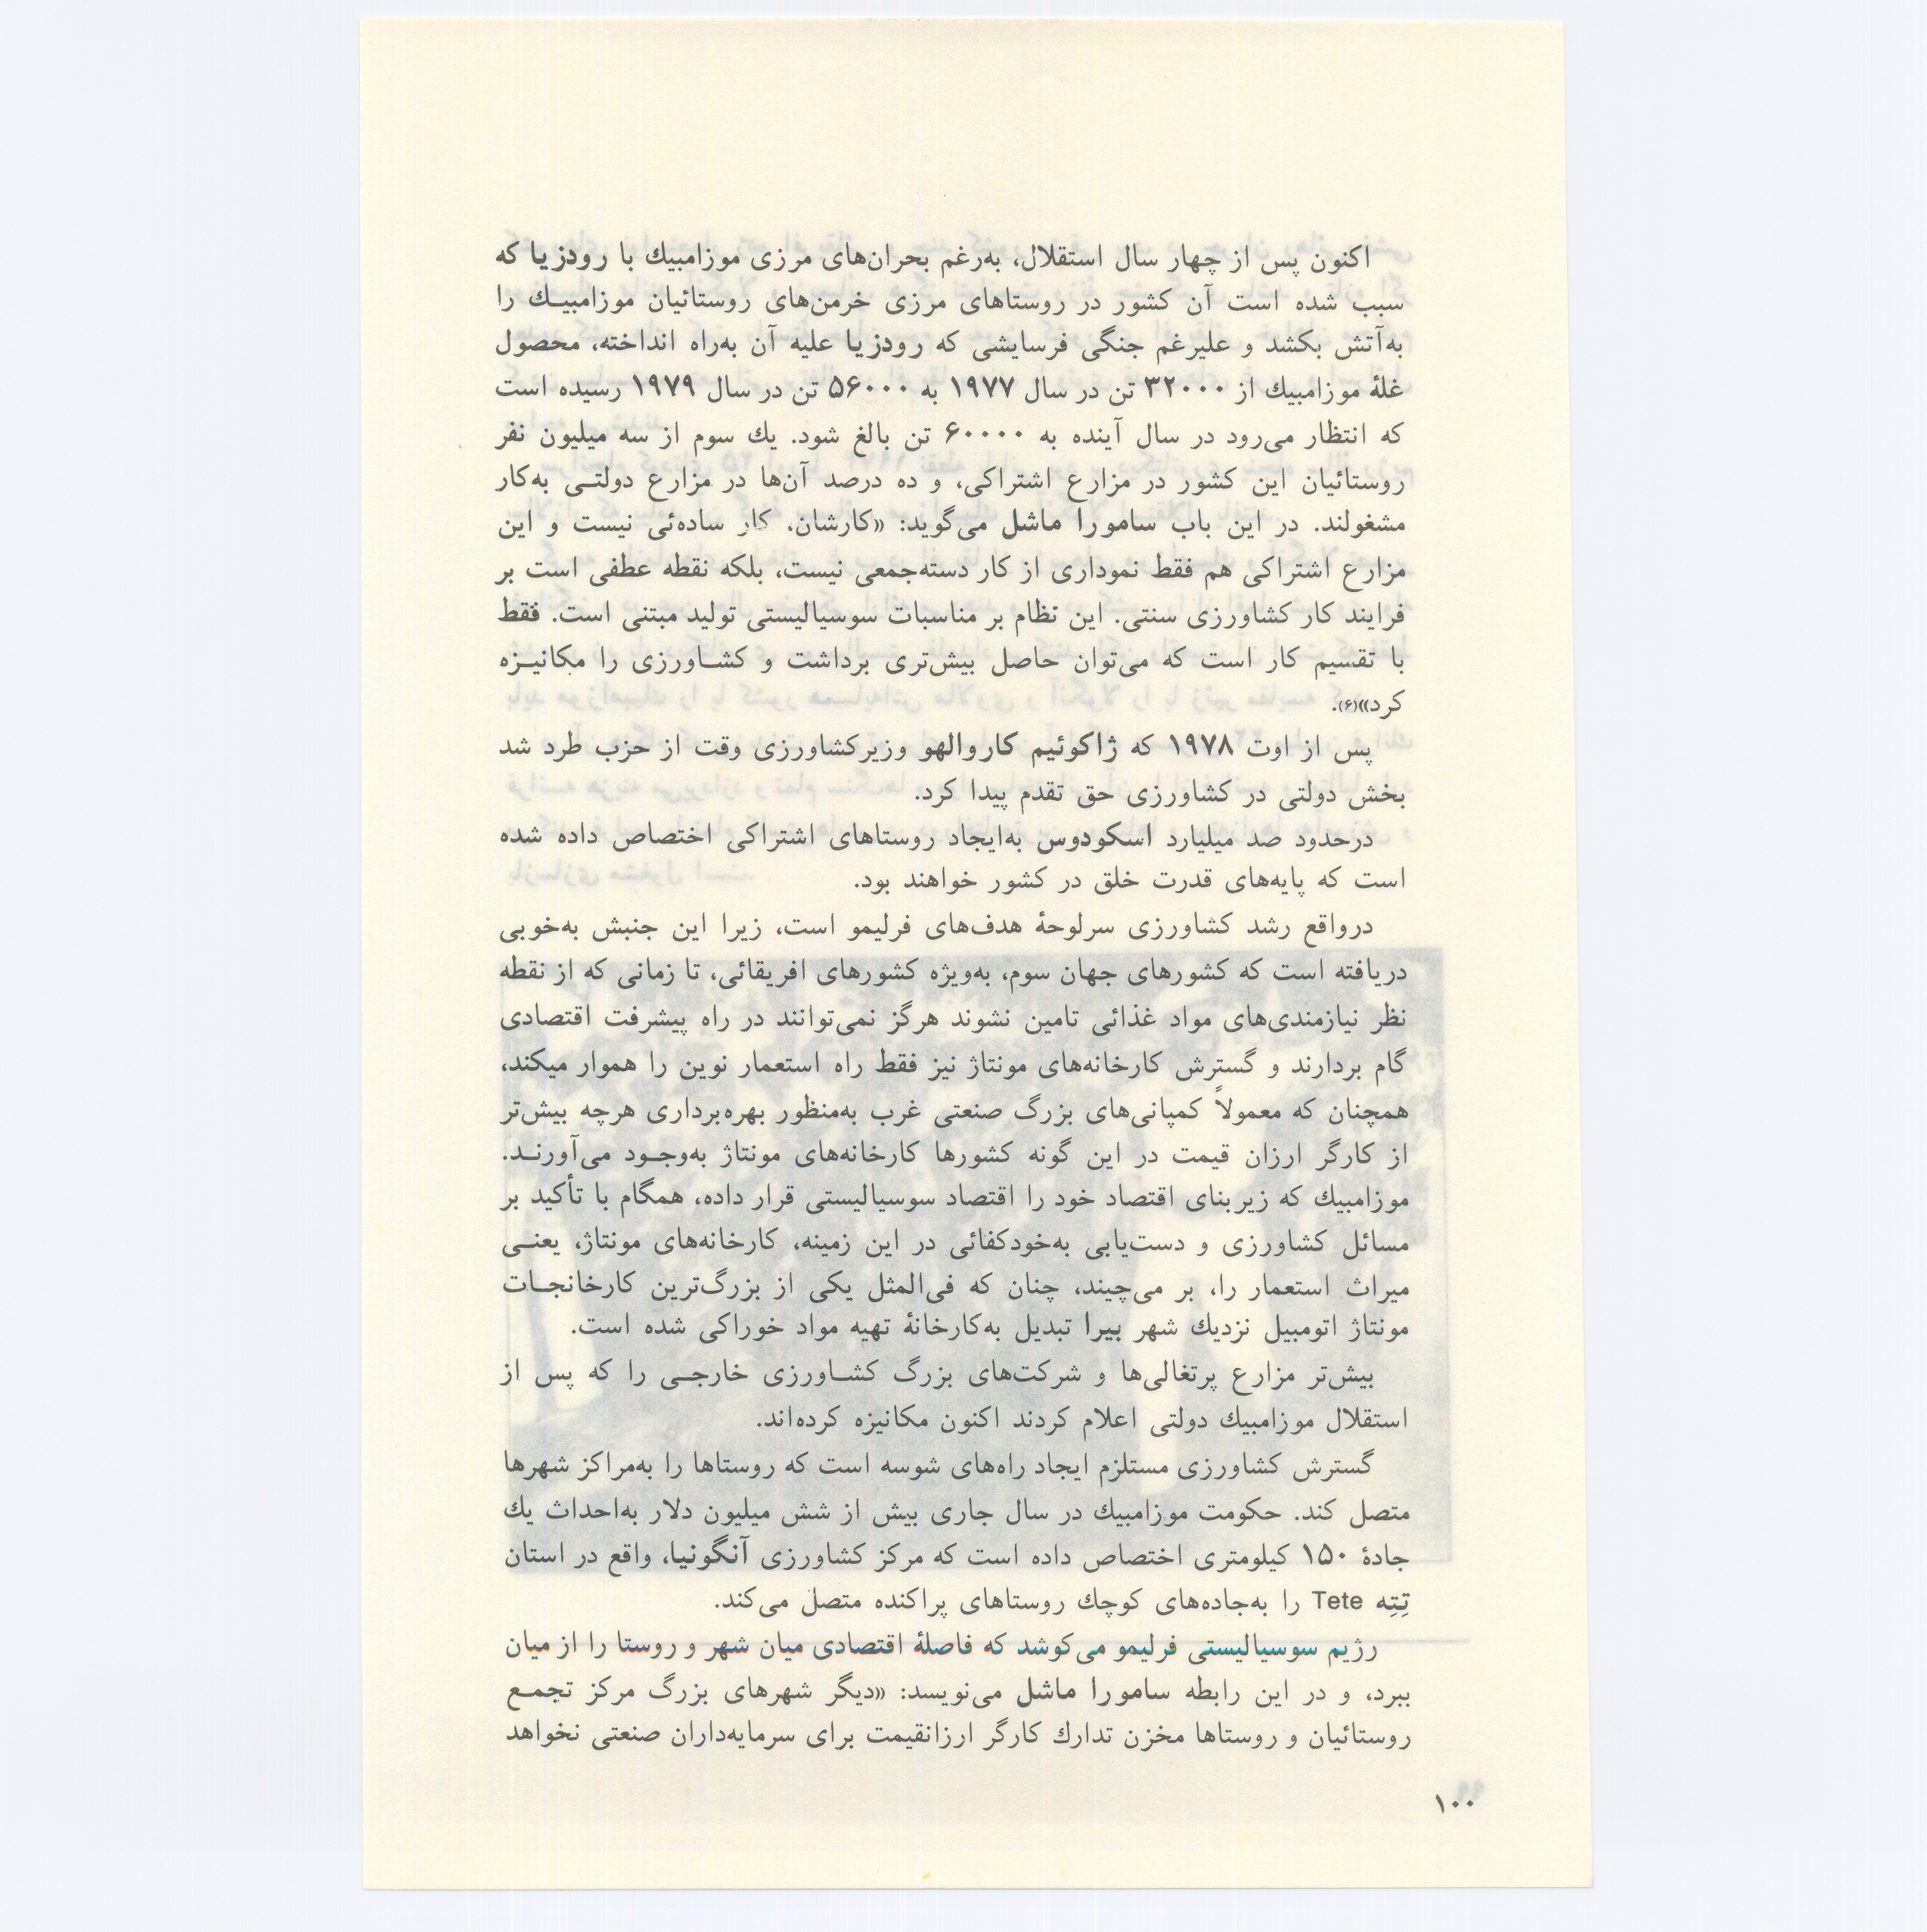 اکنون پس از چهار سال استقلال، به‌رغم بحران‌های مرزی موزامبیك با رودزیا که
سبب شده است آن کشور در روستاهای مرزی خرمن‌های روستائیان موزامبیـك را
به‌آتش بکشد و علیرغم جنگی فرسایشی که رودزیا علیه آن به‌راه انداخته، محصول
غلهٔ موزامبیك از ۳۲۰۰۰ تن در سال ۱۹۷۷ به ۵۶۰۰۰ تن در سال ۱۹۷۹ رسیده است
که انتظار می‌رود در سال آینده به ۶۰۰۰۰ تن بالغ شود. یك سوم از سه میلیون نفر
روستائیان این کشور در مزارع اشتراکی، و ده درصد آن‌ها در مزارع دولتـی به‌کار
مشغولند. در این باب سامورا ماشل می‌گوید: «کارشان، کار ساده‌ئی نیست و این
مزارع اشتراکی هم فقط نموداری از کار دسته‌جمعی نیست، بلکه نقطه عطفی است بر
فرایند کار کشاورزی سنتی. این نظام بر مناسبات سوسیالیستی تولید مبتنی است. فقط
با تقسیم کار است که می‌توان حاصل بیش‌تری برداشت و کشـاورزی را مکانیـزه
کرد»(۶).
پس از اوت ۱۹۷۸ که ژاکوئیم کاروالهو وزیرکشاورزی وقت از حزب طرد شد
بخش دولتی در کشاورزی حق تقدم پیدا کرد.
درحدود صد میلیارد اسکودوس به‌ایجاد روستاهای اشتراکی اختصاص داده شده
است که پایه‌های قدرت خلق در کشور خواهند بود.
درواقع رشد کشاورزی سرلوحهٔ هدف‌های فرلیمو است، زیرا این جنبش به‌خوبی
دریافته است که کشورهای جهان سوم، به‌ویژه کشورهای افریقائی، تا زمانی که از نقطه
نظر نیازمندی‌های مواد غذائی تامین نشوند هرگز نمی‌توانند در راه پیشرفت اقتصادی
گام بردارند و گسترش کارخانه‌های مونتاژ نیز فقط راه استعمار نوین را هموار میکند،
همچنان که معمولاً کمپانی‌های بزرگ صنعتی غرب به‌منظور بهره‌برداری هرچه بیش‌تر
از کارگر ارزان قیمت در این گونه کشورها کارخانه‌های مونتاژ به‌وجـود می‌آورنـد.
موزامبیك که زیربنای اقتصاد خود را اقتصاد سوسیالیستی قرار داده، همگام با تأکید بر
مسائل کشاورزی و دست‌یابی به‌خودکفائی در این زمینه، کارخانه‌های مونتاژ، یعنـی
میراث استعمار را، بر می‌چیند، چنان که فی‌المثل یکی از بزرگ‌ترین کارخانجـات
مونتاژ اتومبیل نزدیك شهر بیرا تبدیل به‌کارخانهٔ تهیه مواد خوراکی شده است.
بیش‌تر مزارع پرتغالی‌ها و شرکت‌های بزرگ کشـاورزی خارجـی را که پس از
استقلال موزامبیك دولتی اعلام کردند اکنون مکانیزه کرده‌اند.
گسترش کشاورزی مستلزم ایجاد راه‌های شوسه است که روستاها را به‌مراکز شهرها
متصل کند. حکومت موزامبیك در سال جاری بیش از شش میلیون دلار به‌احداث یك
جادهٔ ۱۵۰ کیلومتری اختصاص داده است که مرکز کشاورزی آنگونیا، واقع در استان
تِتِه Tete را به‌جاده‌های کوچك روستاهای پراکنده متصل می‌کند.
رژیم سوسیالیستی فرلیمو می‌کوشد که فاصلهٔ اقتصادی میان شهر و روستا را از میان
ببرد، و در این رابطه سامورا ماشل می‌نویسد: «دیگر شهرهای بزرگ مرکز تجمـع
روستائیان و روستاها مخزن تدارك کارگر ارزانقیمت برای سرمایه‌داران صنعتی نخواهد
۱۰۰